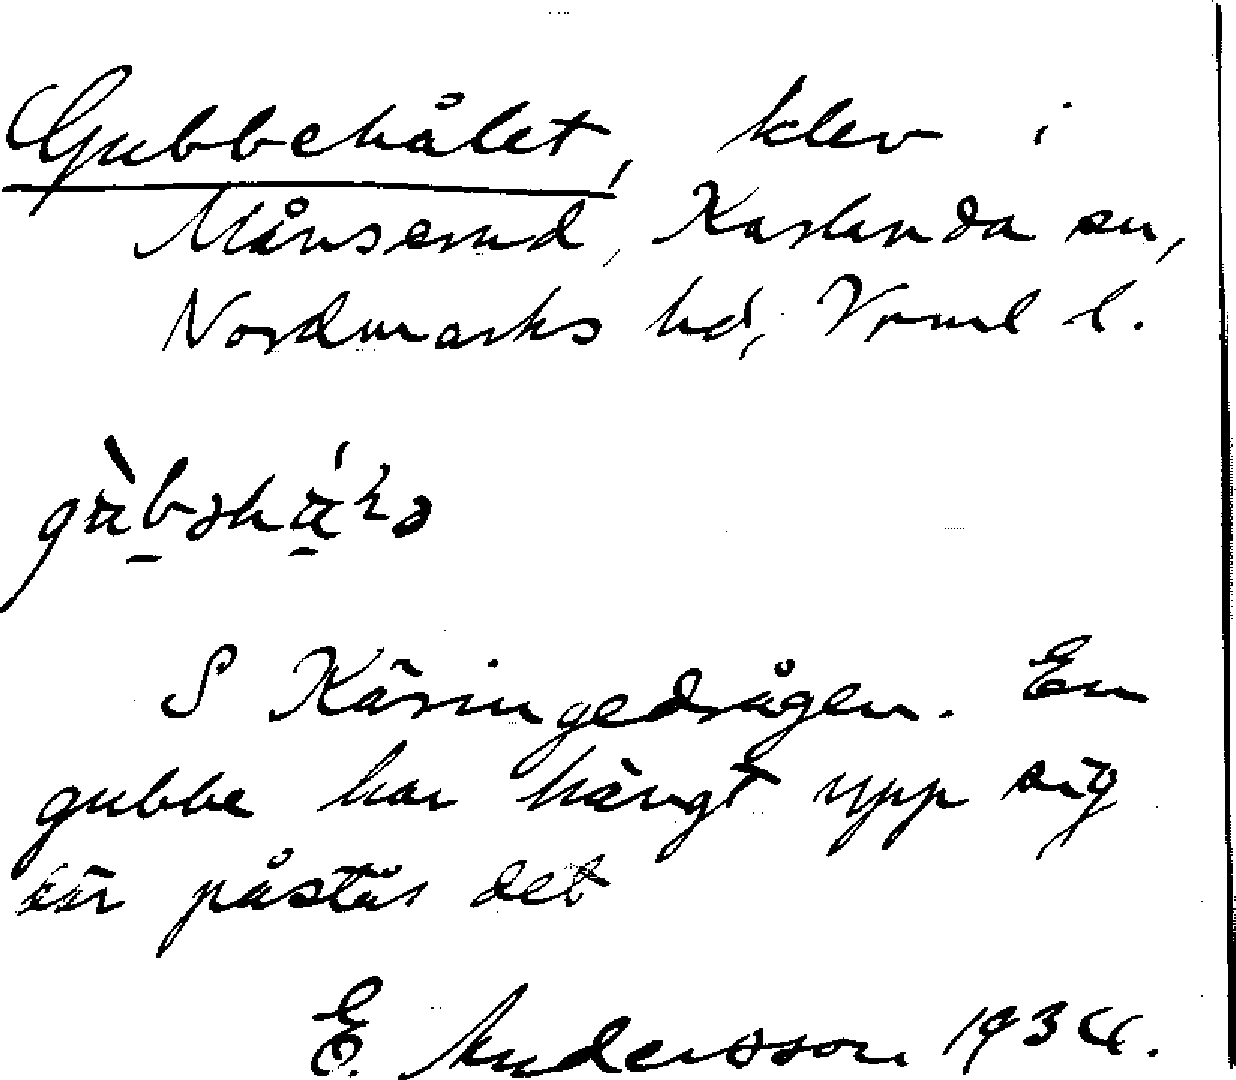 Gubbehålet, klev i
Månserud, Karlanda sn,
Nordmarks hd, Vrml l.
S Käringedrågen. En
gubbe har hängt upp sig
här påstås det
E. Andersson 1934.